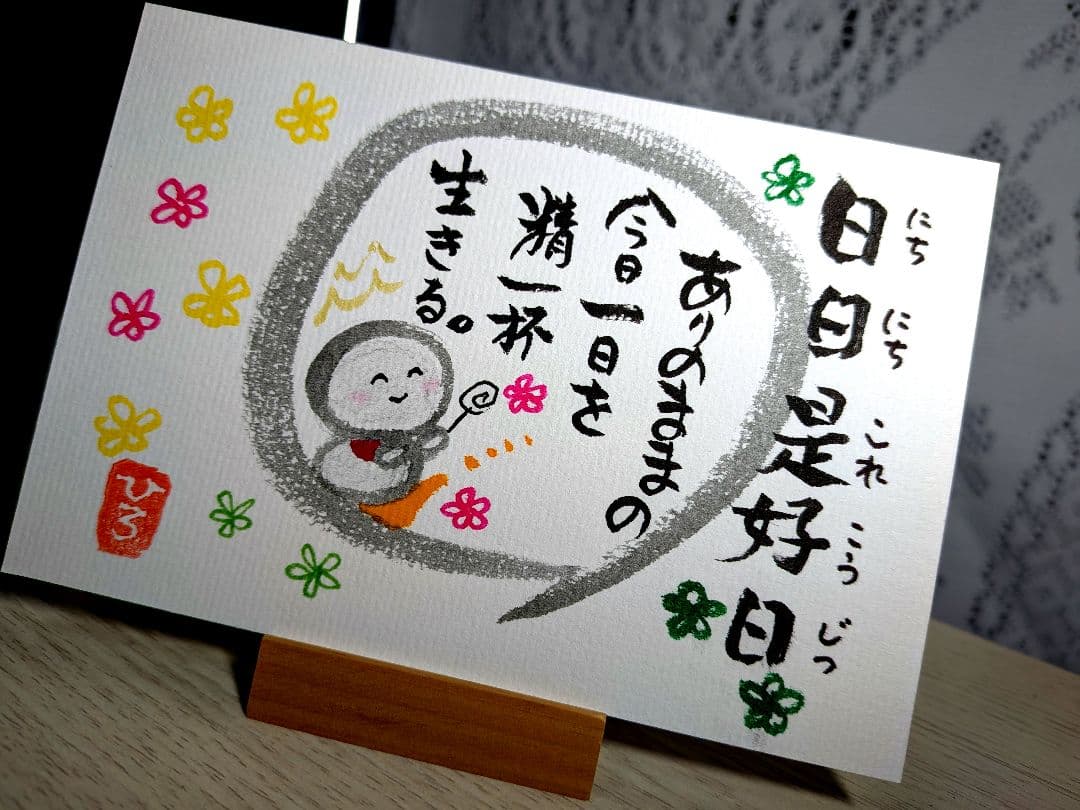 日日是好日
にち にち これ こう じつ
ありのままの
今日一日を
精一杯
生きる。
ひろ